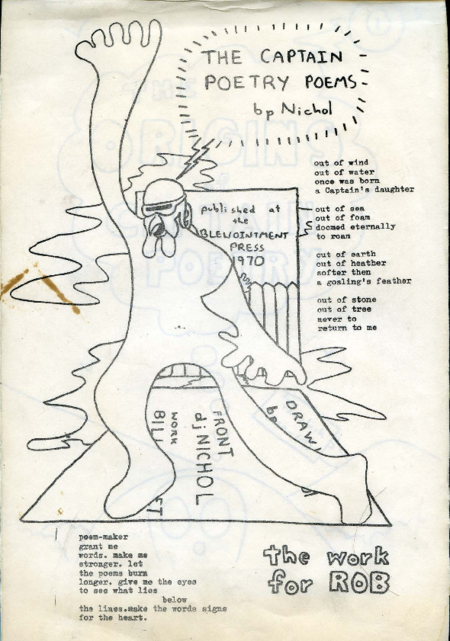 THE CAPTAIN
POETRY POEMS
bp Nichol
out of wind
out of water
once was born
a Captain's daughter
out of sea
out of foam
doomed eternally
to roam
out of earth
out of heather
softer then
a gosling's feather
out of stone
out of tree
never to
return to me
published at
the
BLEWOINTMENT
PRESS
1970
FRONT
dj NICHOL
WORK
BILL
FT
DRAW
bp
poem-maker
grant me
words. make me
stronger. let
the poems burn
longer. give me the eyes
to see what lies
below
the lines.make the words signs
for the heart.
the work
for ROB